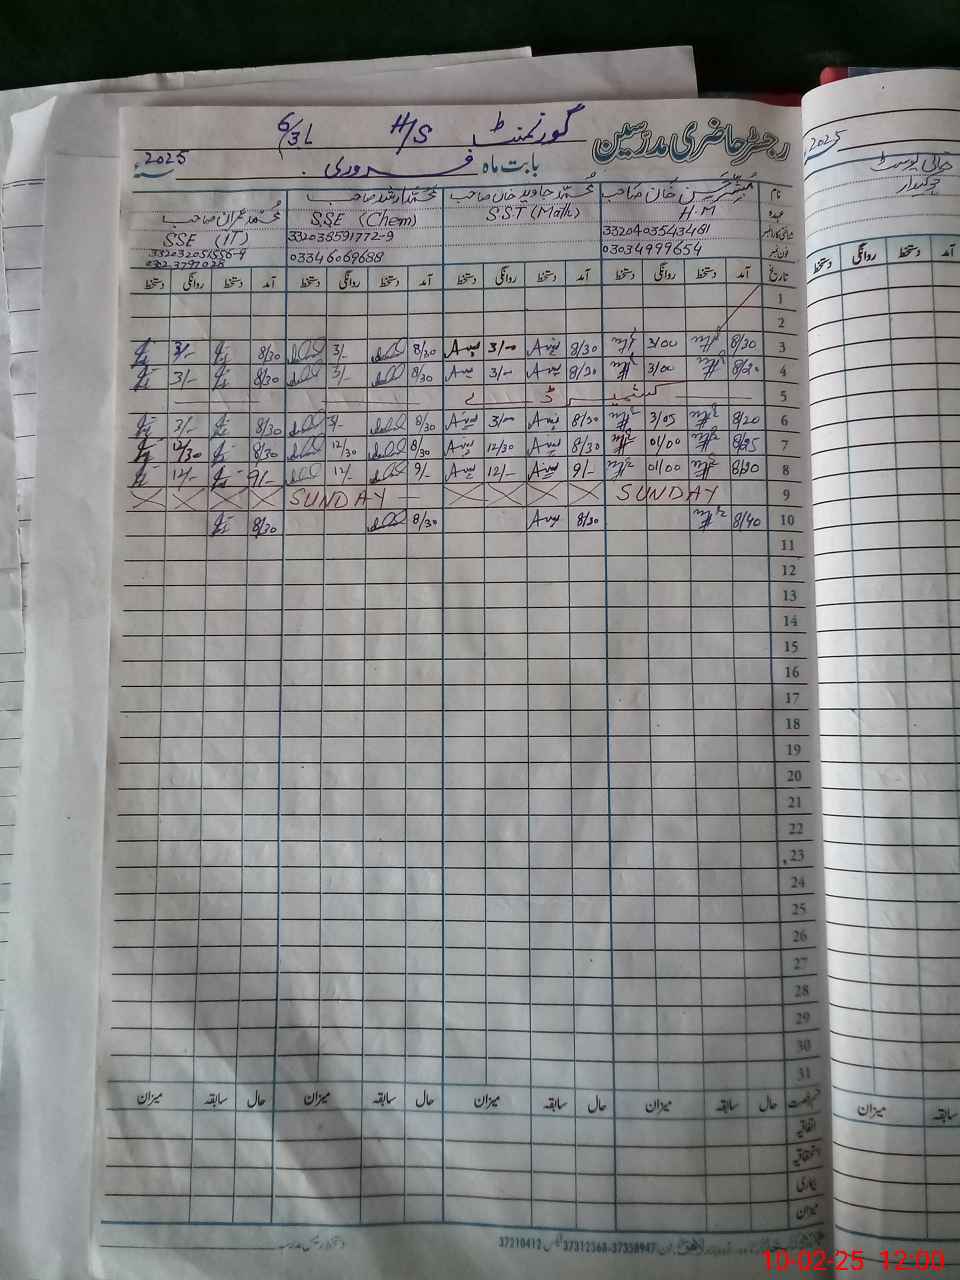 رجسٹر حاضری مدرسین
گورنمنٹ H/S 6/3L
بابت ماہ فروری 2025ء
نام مبشر حسن خان صاحب محمد جاوید خان صاحب محمد ارشد صاحب محمد عمران صاحب
عہدہ H.M SST (Math) SSE (Chem) SSE (IT)
شناختی کارڈ نمبر 3320403543461 332038591772-9 332032051556-9
فون نمبر 03034999654 03346069688
تاریخ آمد دستخط روانگی دستخط آمد دستخط روانگی دستخط آمد دستخط روانگی دستخط آمد دستخط روانگی دستخط
1
2
3 8/30 3/00 8/30 3/- 8/30 3/- 8/30 3/-
4 8/20 3/00 8/30 3/- 8/30 3/- 8/30 3/-
5 کشمیر ڈے
6 8/20 3/05 8/30 3/- 8/30 3/- 8/30 3/-
7 8/25 01/00 8/30 12/30 8/30 12/30 8/30 12/30
8 8/30 01/00 9/- 12/- 9/- 12/- 9/- 12/-
9 SUNDAY SUNDAY
10 8/40 8/30 8/30 8/30
11
12
13
14
15
16
17
18
19
20
21
22
23
24
25
26
27
28
29
30
31
رخصت حال سابقہ میزان حال سابقہ میزان حال سابقہ میزان حال سابقہ میزان
اتفاقیہ
استحقاقیہ
بیماری
میزان
37312368-37358947 37210412
2025
خالی پوسٹ
چوکیدار
دستخط روانگی دستخط
سابقہ میزان
10-02-25 12:00